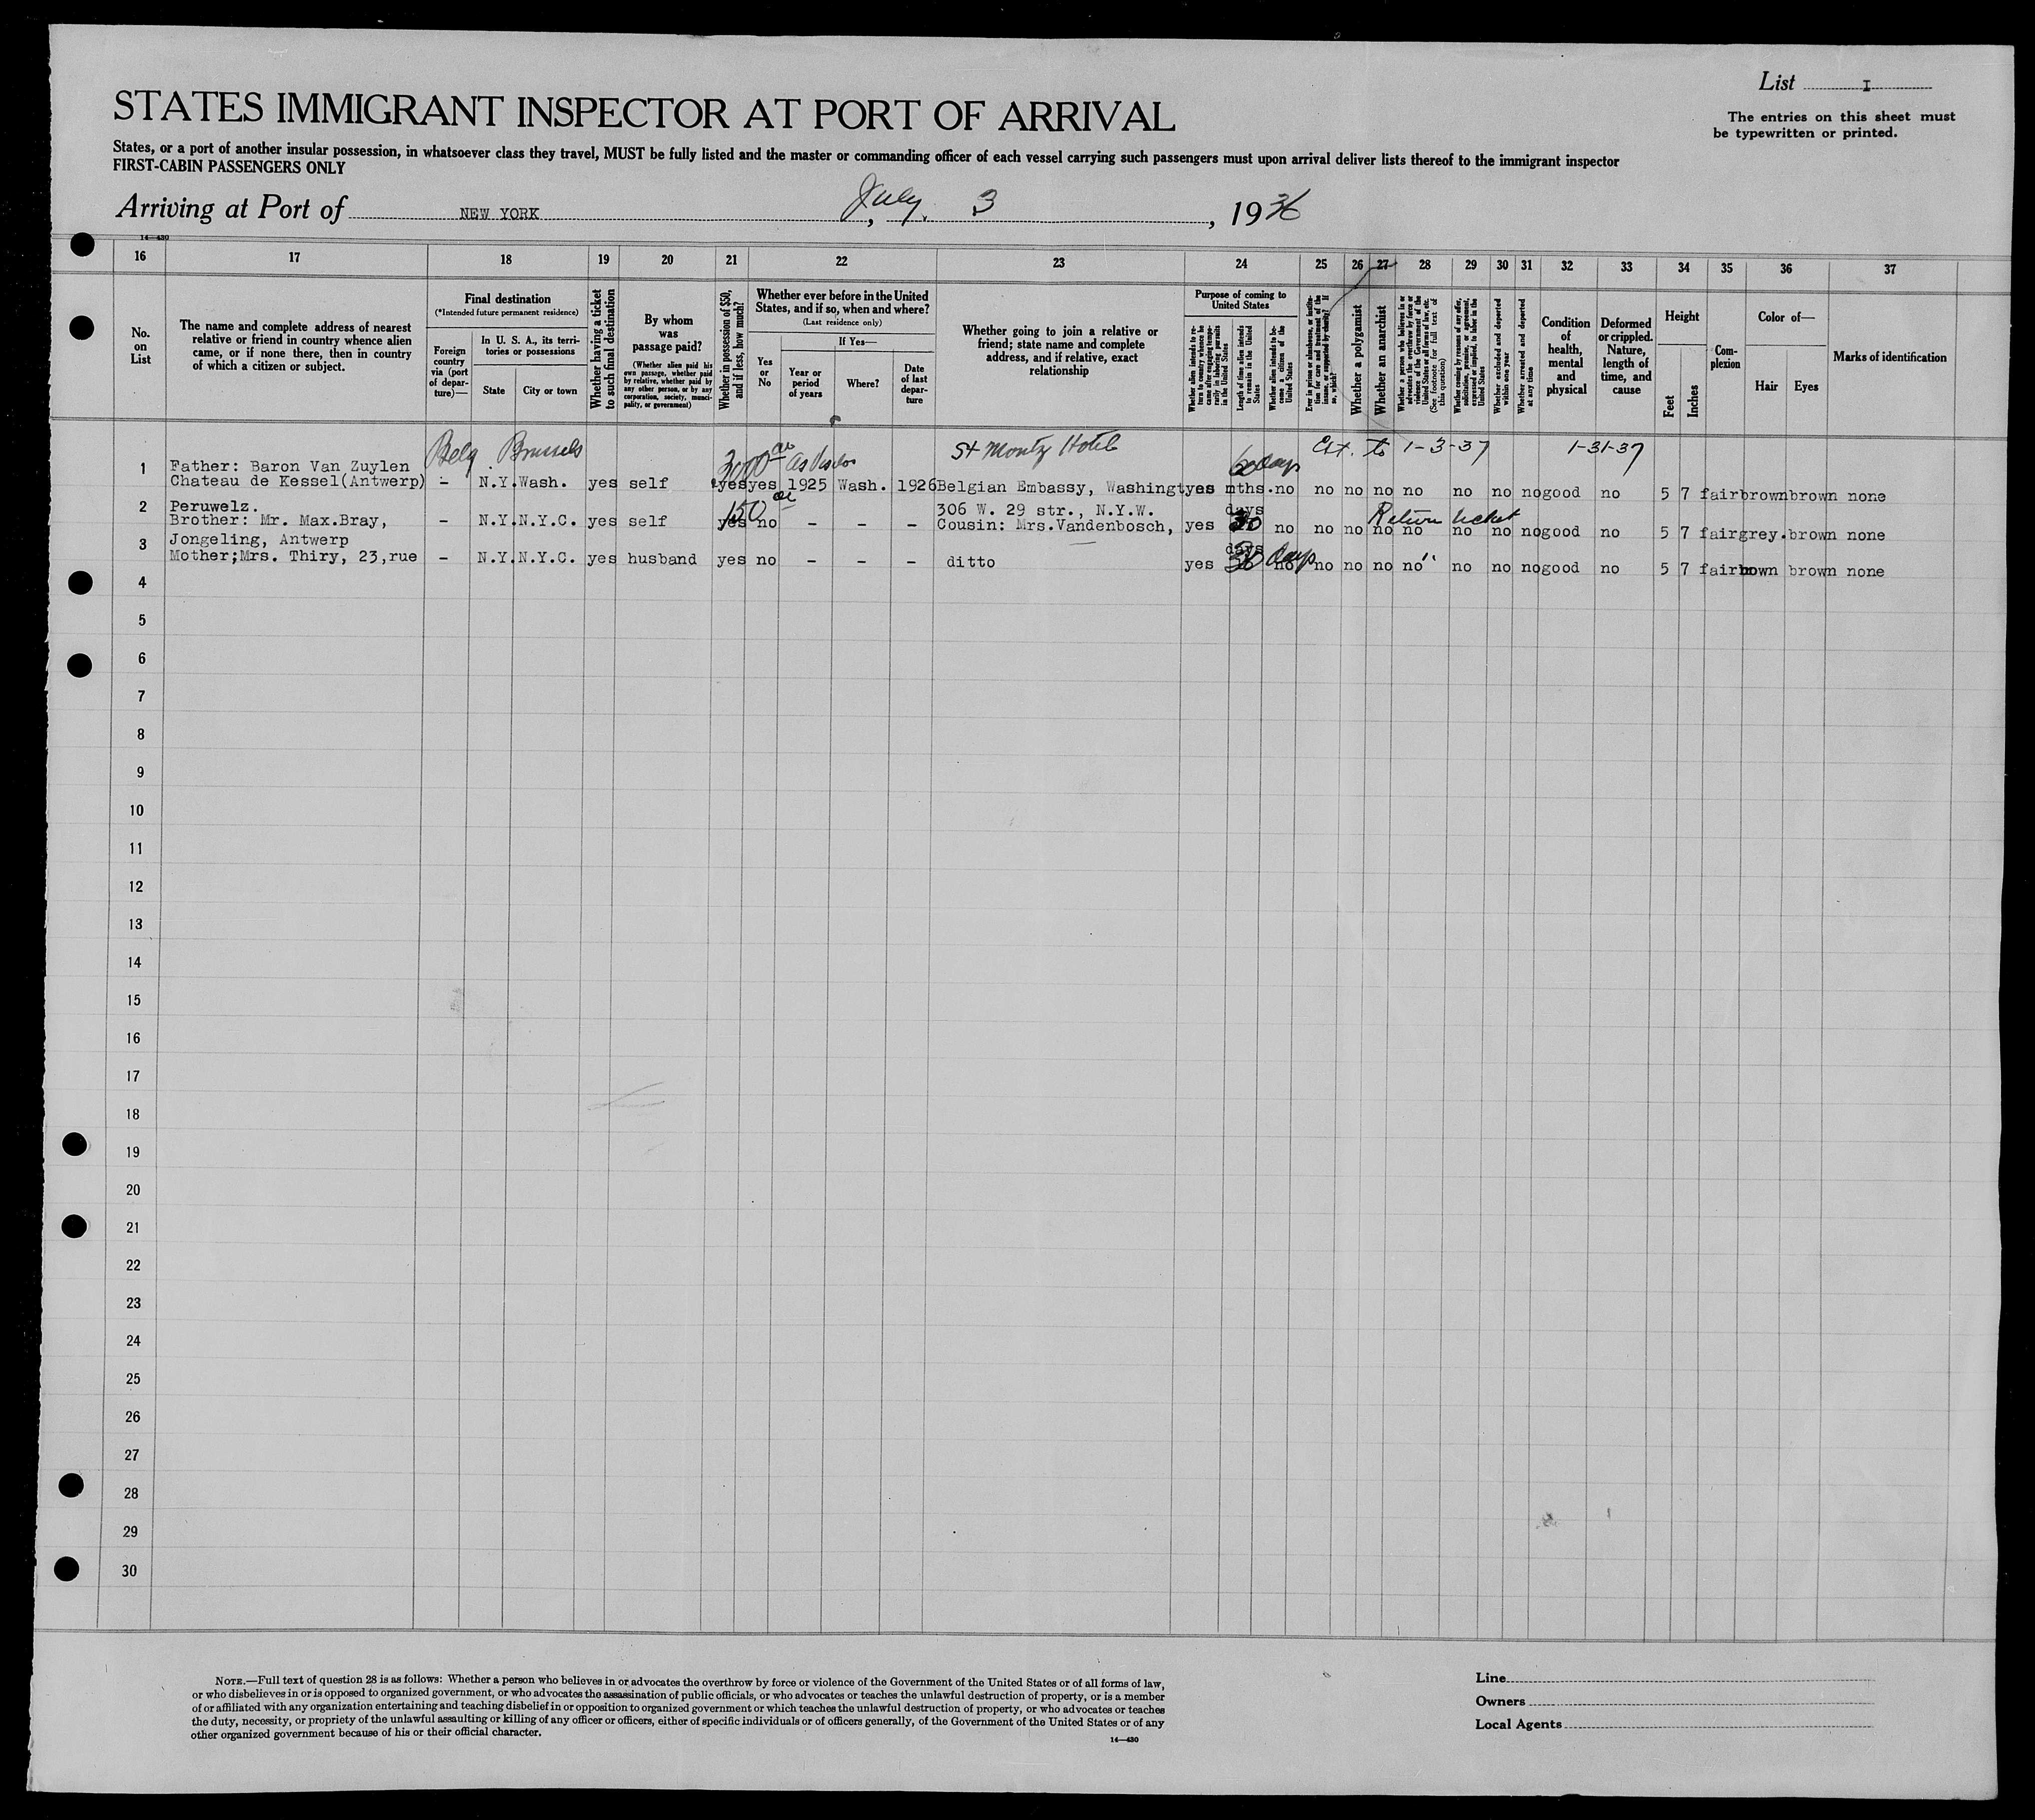 List I
The entries on this sheet must
be typewritten or printed.
STATES IMMIGRANT INSPECTOR AT PORT OF ARRIVAL
States, or a port of another insular possession, in whatsoever class they travel, MUST be fully listed and the master or commanding officer of each vessel carrying such passengers must upon arrival deliver lists thereof to the immigrant inspector
FIRST-CABIN PASSENGERS ONLY
Arriving at Port of NEW YORK, July. 3, 1936
14—430
16 17 18 19 20 21 22 23 24 25 26 27 28 29 30 31 32 33 34 35 36 37
No. on List
The name and complete address of nearest relative or friend in country whence alien came, or if none there, then in country of which a citizen or subject.
Final destination
(*Intended future permanent residence)
Foreign country via (port of departure)—
In U. S. A., its territories or possessions
State
City or town
Whether having a ticket to such final destination
By whom was passage paid?
(Whether alien paid his own passage, whether paid by relative, whether paid by any other person, or by any corporation, society, municipality, or government)
Whether in possession of $50, and if less, how much?
Whether ever before in the United States, and if so, when and where?
(Last residence only)
Yes or No
If Yes—
Year or period of years
Where?
Date of last departure
Whether going to join a relative or friend; state name and complete address, and if relative, exact relationship
Purpose of coming to United States
Whether alien intends to return to country whence he came after engaging temporarily in laboring pursuits in the United States
Length of time alien intends to remain in the United States
Whether alien intends to become a citizen of the United States
Ever in prison or almshouse, or institution for care and treatment of the insane, or supported by charity? If so, which?
Whether a polygamist
Whether an anarchist
Whether a person who believes in or advocates the overthrow by force or violence of the Government of the United States or all forms of law, etc. (See footnote for full text of this question)
Whether coming by reason of any offer, solicitation, promise, or agreement, expressed or implied, to labor in the United States
Whether excluded and deported within one year
Whether arrested and deported at any time
Condition of health, mental and physical
Deformed or crippled. Nature, length of time, and cause
Height
Feet
Inches
Complexion
Color of—
Hair
Eyes
Marks of identification
Belg. Brussels 3000 St Moritz Hotel 60 days Ext. to 1-3-37 1-31-37
1 Father: Baron Van Zuylen
Chateau de Kessel(Antwerp) - N.Y. Wash. yes self yes yes 1925 Wash. 1926 Belgian Embassy, Washingt yes mths. no no no no no no no no good no 5 7 fair brown brown none
2 Peruwelz. 150 306 W. 29 str., N.Y.W. days Return ticket
Brother: Mr. Max.Bray, - N.Y. N.Y.C. yes self yes no - - - Cousin: Mrs.Vandenbosch, yes 30 no no no no no no no no good no 5 7 fair grey. brown none
3 Jongeling, Antwerp days
Mother;Mrs. Thiry, 23,rue - N.Y. N.Y.C. yes husband yes no - - - ditto yes 30 days no no no no no " no no no good no 5 7 fair brown brown none
4
5
6
7
8
9
10
11
12
13
14
15
16
17
18
19
20
21
22
23
24
25
26
27
28
29
30
NOTE.—Full text of question 28 is as follows: Whether a person who believes in or advocates the overthrow by force or violence of the Government of the United States or of all forms of law,
or who disbelieves in or is opposed to organized government, or who advocates the assassination of public officials, or who advocates or teaches the unlawful destruction of property, or is a member
of or affiliated with any organization entertaining and teaching disbelief in or opposition to organized government or which teaches the unlawful destruction of property, or who advocates or teaches
the duty, necessity, or propriety of the unlawful assaulting or killing of any officer or officers, either of specific individuals or of officers generally, of the Government of the United States or of any
other organized government because of his or their official character.
14—430
Line
Owners
Local Agents